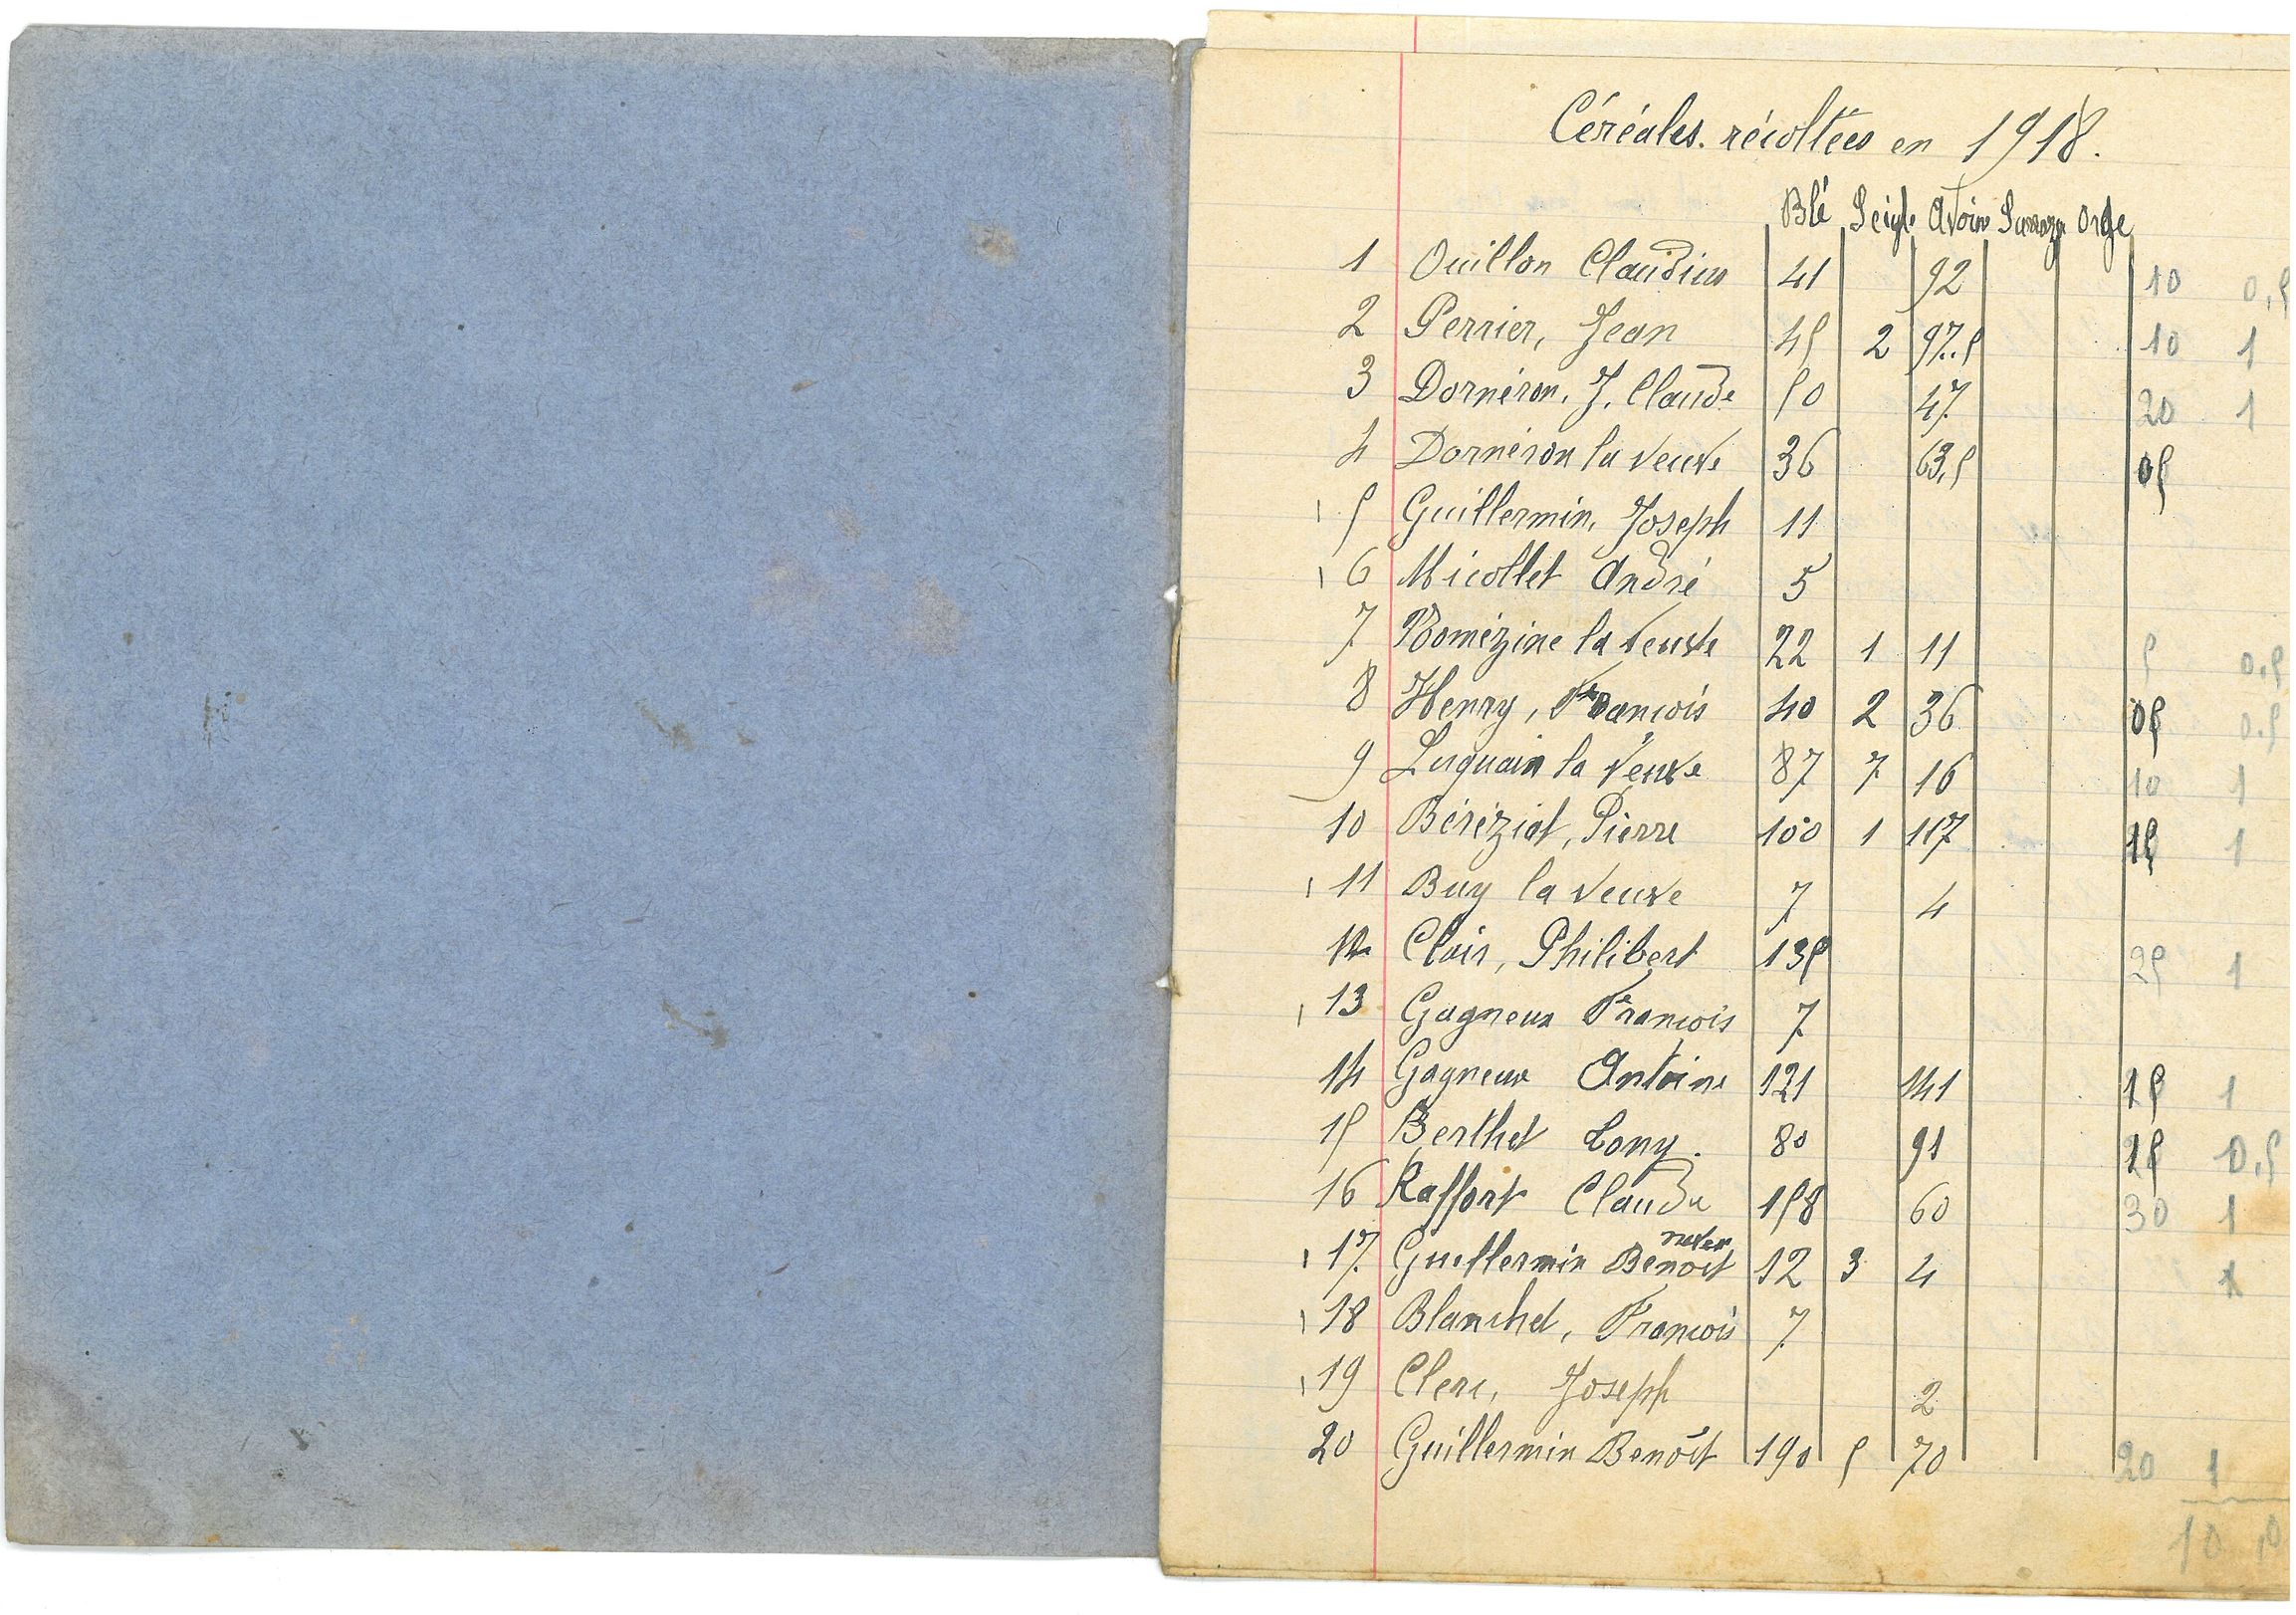 Céréales récoltées en 1918.
Blé Seigle Avoine Sarrazin Orge
1 Ouillon Claudius 41 92 10 0,5
2 Perrier, Jean 45 2 97.5 10 1
3 Dornéron, J. Claude 50 47 20 1
4 Dornéron la veuve 36 63,5 05
5 Guillermin, Joseph 11
6 Micollet André 5
7 Pomézine la veuve 22 1 11 5 0,5
8 Henry, François 40 2 36 05 0.5
9 Luquain la veuve 87 7 16 10 1
10 Béréziat, Pierre 100 1 117 15 1
11 Buy la veuve 7 4
12 Clair, Philibert 135 25 1
13 Gagneux François 7
14 Gagneux Antoine 121 141 15 1
15 Berthet Tony. 80 91 15 0,5
16 Raffort Claude 158 60 30 1
17 Guillermin Benoit 12 3 4 1
18 Blanchet, François 7
19 Clerc, Joseph 2
20 Guillermin Benoît 190 5 70 20 1
10,0